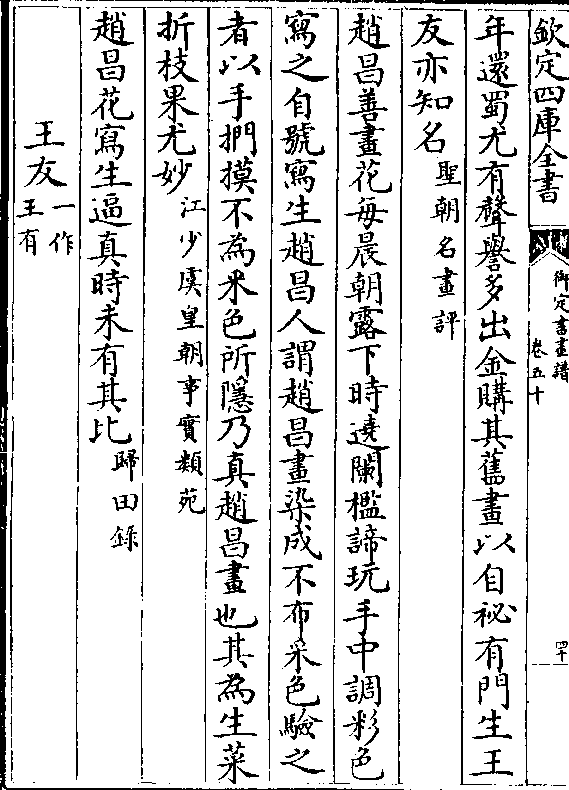 欽定四庫全書
御定書畫譜
卷五十
四十
年還蜀尤有聲譽多出金購其舊畫以自祕有門生王
友亦知名聖朝名畫評
趙昌善畫花每晨朝露下時遶闌檻諦玩手中調彩色
寫之自號寫生趙昌人謂趙昌畫染成不布采色驗之
者以手捫摸不為采色所隱乃真趙昌畫也其為生菜
折枝果尤妙江少虞皇朝事實類苑
趙昌花寫生逼真時未有其比歸田錄
王友一作王有